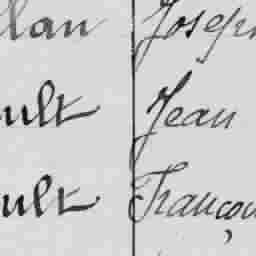 llan Joseph
ult Jean
ult Françoi